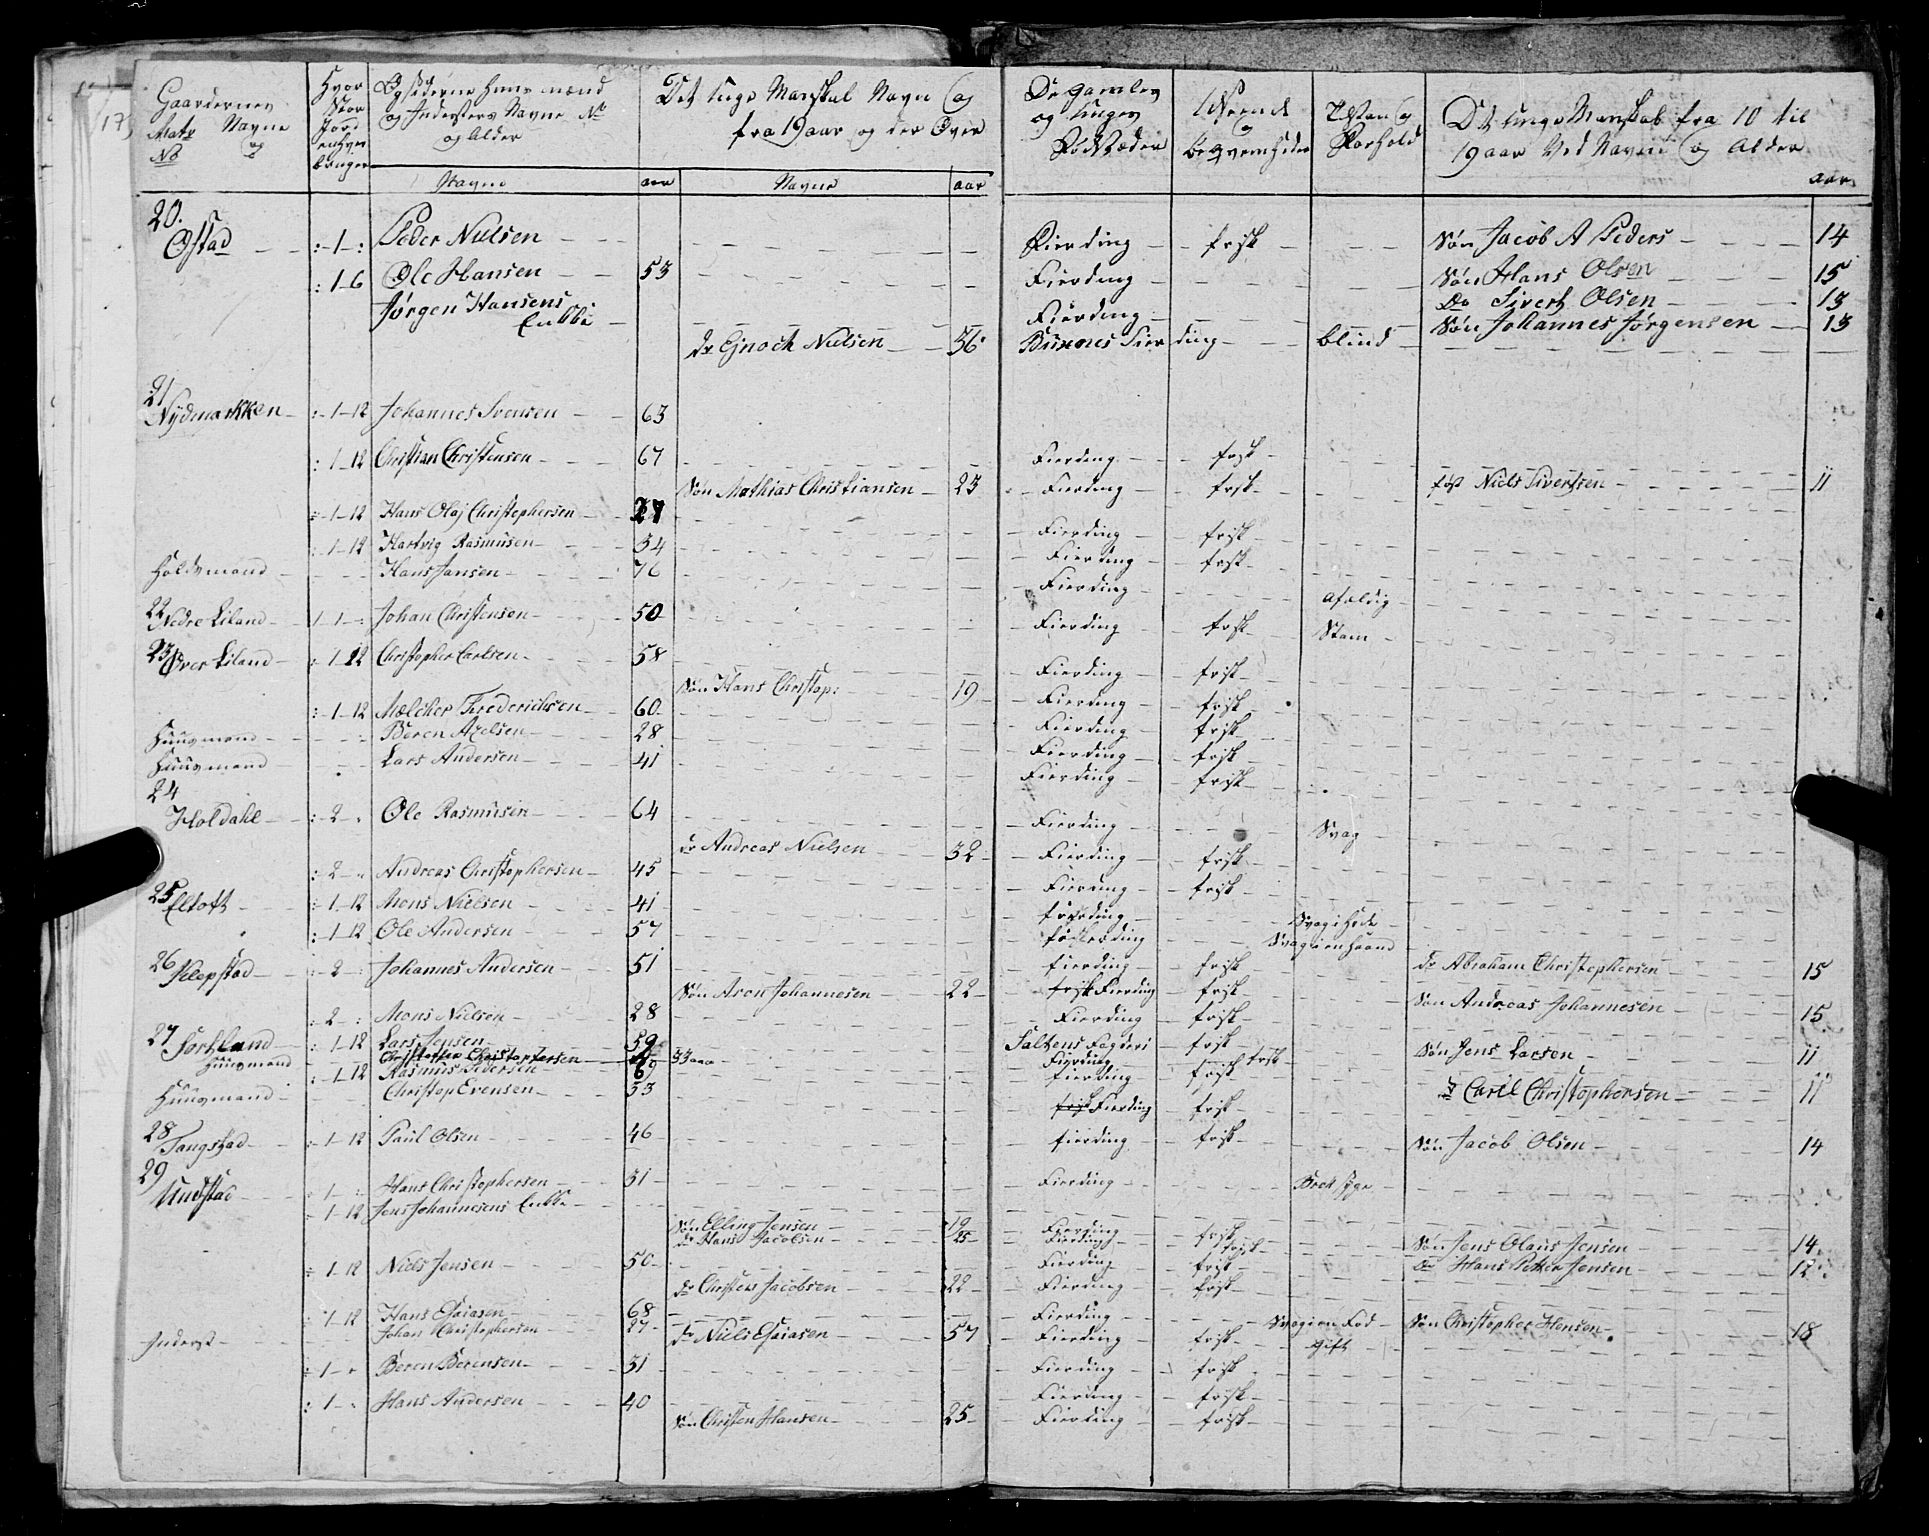 17
Gaardernes Navne og Matr No
Hvor Stor Jord en
Opsiderne Huusmænd og Inderster Navne og Alder
Navne aar
Det unge Manskab Navn og fra 19 aar og der Over
Navne aar
De gamles og unges Fødstæder
begvemheder
Det unge Manskab fra 10 til 19 aar Ved Navne og Alder
aar
20.
Ostad :-1-: Peder Nielsen Fierding frisk Søn Jacob A Peders 14
:1-6 Ole Hansen 53 Fierding Søn Hans Olsen 15
Do Sivert Olsen 13
Jørgen Hansens Enkke Fierding Søn Johannes Jørgensen 13
dr Ejnoch Nielsen 36 Buxnes Fierding blind
21
Nydmarkken :-1-12 Johannes Svensen 63
:1-12 Christian Christensen 67 Fierding frisk
Søn Mathias Christiansen 23 Fierding frisk føst Niels Sivertsen 11
:-1-12 Hans Olaj Christophersen 27 Fierding frisk
:1-12 Hartvig Rasmusen 34 Fierding frisk
Holdsmand Hans Jansen 76 Fierding Afældig
22 Nedre Liland 1 1-: Johan Christensen 50 Fierding frisk Stam
23 Over Liland : 1-12 Christopher Carlsen 58 Fierding frisk
Søn Hans Christop: 19 Fierding frisk
:-1-12 Mælcher Frederichsen 60 Fierding frisk
Huusmand Beren Axelsen 28 Fierding frisk
Huusmand Lars Andersen 41 Fierding frisk
24
Holdahl :-2 Ole Rasmusen 64 Fierding Svag
dr Andreas Nielsen 32 Fierding frisk
:-2-" Andreas Christophersen 45 Fierding frisk
25 Eltoft :-1-12 Mons Nielsen 41 fierding Svag i Hode
:1-12 Ole Andersen 57 Svag i en haand
26 Klepstad :-2-: Johannes Andersen 51 fierding frisk dr Abraham Christophersen 15
Søn Aron Johannesen 22 frisk Fierding frisk Søn Andreas Johannesen 15
:2-: Mons Nielsen 28 Fierding frisk
27 Sortland :-1-12 Lars Jensen 59 Saltens Fogderi frisk Søn Jens Larsen 11
Huusmand Christopher Christophersen 33 aar Fierding frisk
:-1-12 Rasmus Pedersen 69 fierding frisk
Huusmand Christop Evensen 53 frisk Fierding frisk dr Carel Christophersen 11
28
Tangstad :-1-12 Paul Olsen 46 fierding frisk Søn Jacob Olsen 14
29
Undstad :1-: Hans Christophersen 31 Fierding Brok syge
:1-12 Jens Johannesens Enkke
Søn Elling Jensen 19 Fierding frisk
dr Hans Jacobsen 25 Fierding frisk Søn Jens Olaus Jensen 14
:1-12 Niels Jensen 50 Fierding frisk do Hans Petter Jensen 12
dr Christens Jacobsen 22 Fierding frisk
:1-12 Hans Esaiasen 68 Fierding Svag i en Fod Søn Christopher Hensen 18
Inderst Johan Christophersen 27 dr Niels Esaiasen 57 Fierding frisk Gift
:-1-" Beren Berensen 31 Fierding frisk
:1-: Hans Andersen 40 Fierding frisk
Søn Christen Hansen 25 Fierding frisk